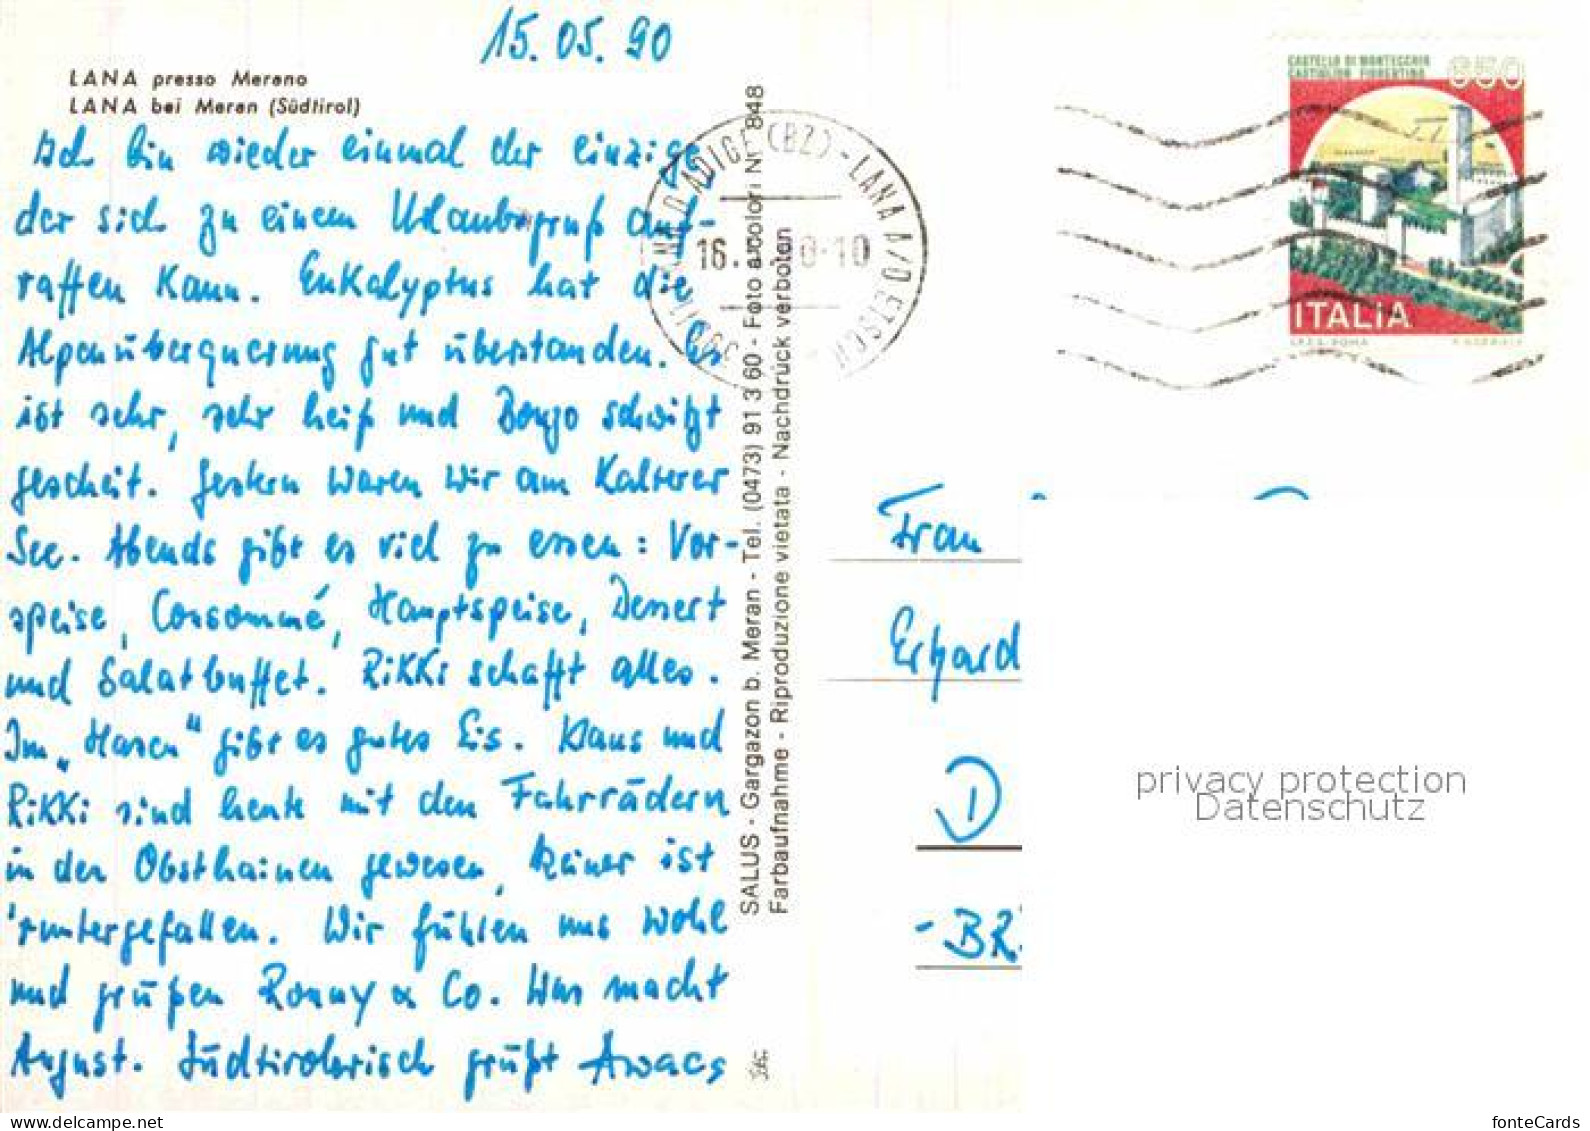 15.05.90
LANA presso Merano
LANA bei Meran (Südtirol)
Ich bin wieder einmal der einzige
der sich zu einem Urlaubsgruß auf-
raffen kann. Eukalyptus hat die
Alpenüberquerung gut überstanden. Es
ist sehr, sehr heiß und Bongo schwitzt
gescheit. Gestern waren wir am Kalterer
See. Abends gibt es viel zu essen: Vor-
speise, Consommé, Hauptspeise, Dessert
und Salatbuffet. Rikki schafft alles.
Im "Hasen" gibt es gutes Eis. Klaus und
Rikki sind heute mit den Fahrrädern
in den Obsthainen gewesen, keiner ist
'runtergefallen. Wir fühlen uns wohl
und grüßen Ronny & Co. Was macht
August. Südtirolerisch grüßt Awacs
SALUS - Gargazon b. Meran - Tel. (0473) 91 3 60 - Foto a colori Nr. 848
Farbaufnahme - Riproduzione vietata - Nachdruck verboten
D'ADIGE (BZ) - LANA A/D ETSCH
16. 0-10
CASTELLO DI MONTECCHIO
CASTIGLION FIORENTINO
650
ITALIA
I.P.Z.S. ROMA
Frau
Erhard
D
-BRD
privacy protection
Datenschutz
www.delcampe.net
fonteCards